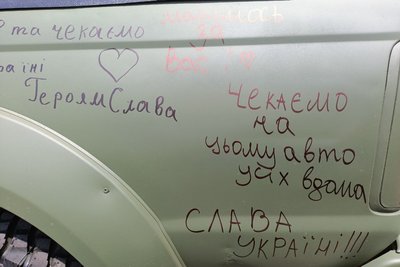 та чекаємо
вас
їні
Героям Слава
Чекаємо
на
цьому авто
усіх вдома
СЛАВА
УКРАЇНІ!!!